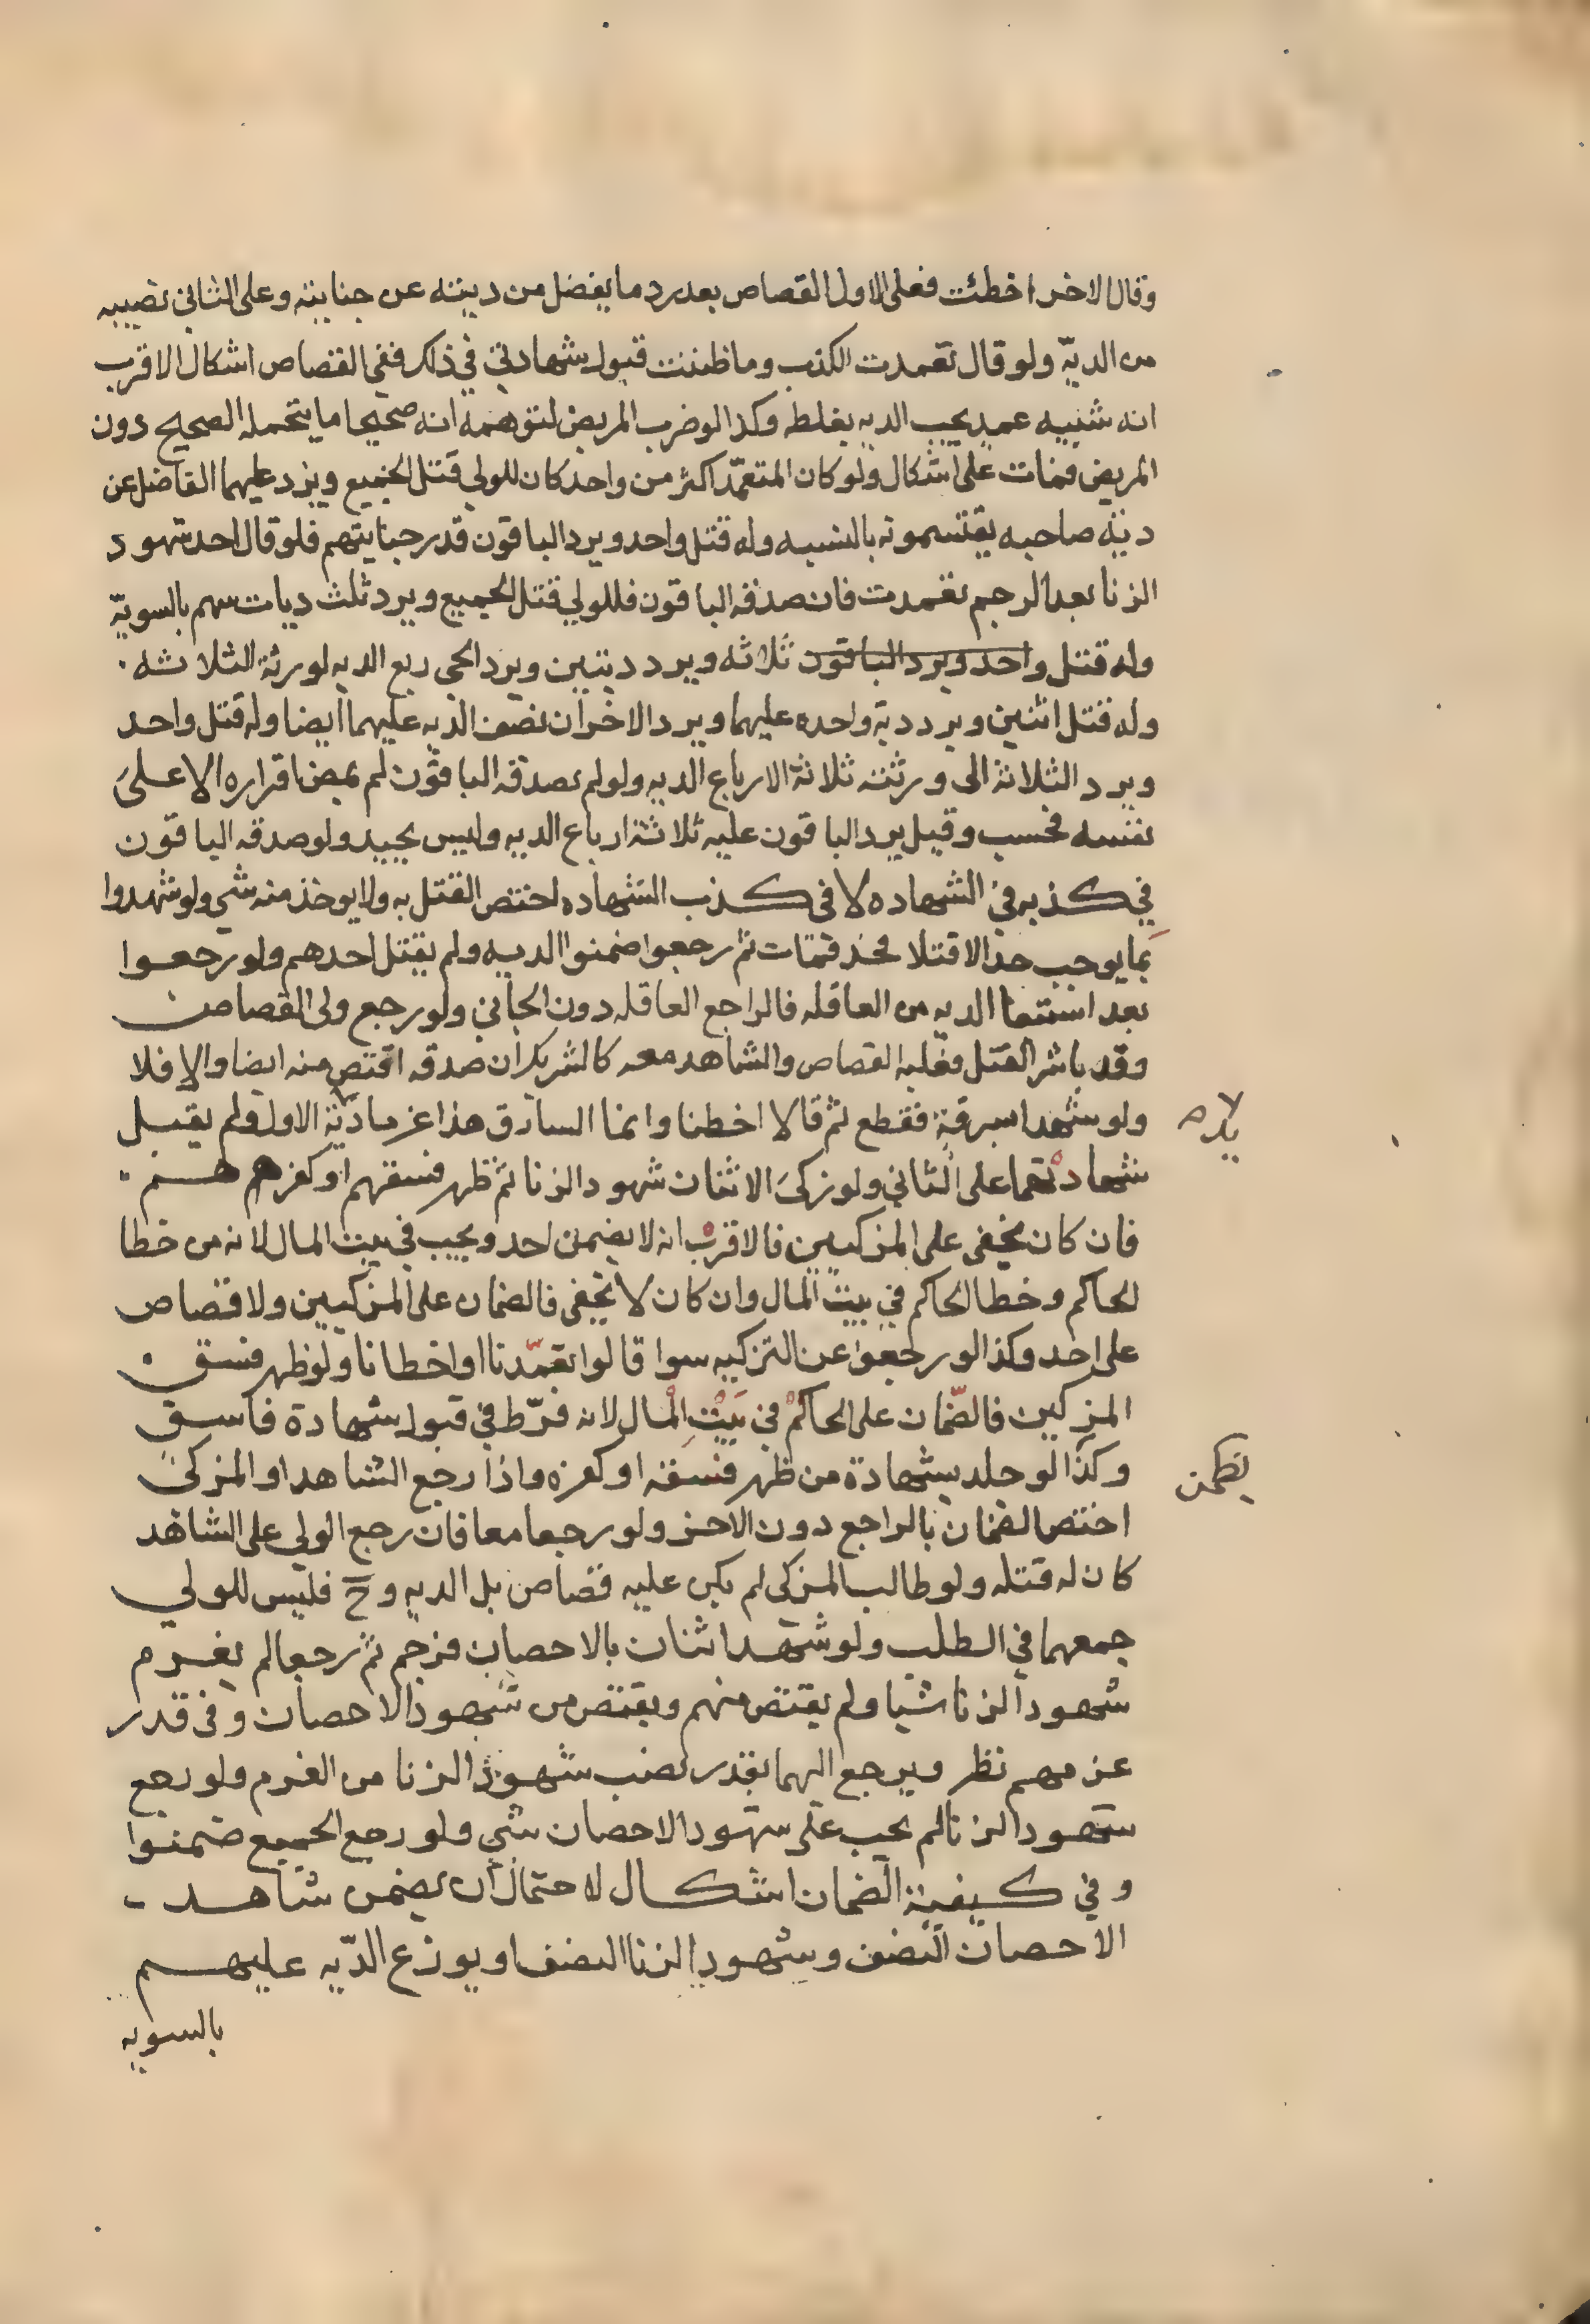 وقال الاخر اخطئت فعلى الاول القصاص بعد رد ما يفضل من ديته عن جنايته وعلى الثاني نصيبه
من الديّة ولو قال تعمدت الكذب وما ظننت قبول شهادتي في ذلك ففي القصاص اشكال الاقرب
انه شبيه عمد يجب الديه بغلطه وكذا لو ضرب المريض لتوهمه انه صحيحا ما يتحمله الصحيح دون
المريض فمات على اشكال ولو كان المتعمّد اكثر من واحد كان للولي قتل الجميع ويرد عليهما الفاضل عن
دية صاحبه يقتسمونه بالنسبه وله قتل واحد ويرد الباقون قدر جنايتهم فلو قال احد شهود
الزنا بعد الرجم تعمدت فان صدقه الباقون فللولي قتل الجميع ويرد ثلث ديات سهم بالسويّة
وله قتل واحد ويرد الباقون ثلاثه ويرد ديتين ويرد الحي ربع الديه لورثة الثلاثه
وله قتل اثنين ويرد دية واحده عليهما ويرد الاخران نصف الديه عليهما ايضا وله قتل واحد
ويرد الثلاثة الى ورثته ثلاثة الارباع الديه ولو لم يصدقه الباقون لم يمض اقراره الا على
نفسه فحسب وقيل يرد الباقون عليه ثلاثة ارباع الديه وليس بجيد ولو صدقه الباقون
في كذبه في الشهاده لا في كذب الشهاده اختص القتل به ولا يوخذ منه شي ولو شهدوا
بما يوجب حدا لا قتلا فحد فمات ثم رجعوا ضمنوا الديه ولم يقتل احدهم ولو رجعوا
بعد استيفا الديه من العاقله فالراجع العاقله دون الجاني ولو رجع ولى القصاص
وقد باشر القتل فعليه القصاص والشاهد معه كالشريك ان صدقه اقتص منه ايضا والا فلا
ولو شهدا سرقة فقطع ثم قالا اخطنا وانما السارق هذا غرما دية الاول ولم يقبل
يدہ
شهادتهما على الثاني ولو زكى الاثنان شهود الزنا ثم ظهر فسقهم او كفرهم
فان كان يخفى على المزكيين فالاقرب انه لا يضمن احد ويجب في بيت المال لانه من خطا
الحاكم وخطا الحاكم في بيت المال وان كان لا يخفى فالضمان على المزكيين ولا قصاص
على احد وكذا لو رجعوا عن التزكيه سوا قالوا تعمّدنا او اخطانا ولو ظهر فسق
المزكيين فالضّمان على الحاكم في بَيْتِ الْمال لانه فرّط في قبول شهادة فاسق
وكذا لو جلد بشهادة من ظهر فسقه او كفره واذا رجع الشاهد او المزكى
اختص الضمان بالراجع دون الاخر ولو رجعا معا فان رجع الولي على الشاهد
كان له قتله ولو طالب المزكى لم يكن عليه قصاص بل الديه وح فليس للولي
جمعهما في الطلب ولو شهد اثنان بالاحصان فرجم ثم رجعا لم يغرم
شهود الزنا شيا ولم يقتص منهم ويقتص من شهود الاحصان وفى قدر
عزمهم نظر ويرجع اليهما بقدر نصب شهود الزنا من الغرم ولو رجع
شهود الزنا لم يجب على شهود الاحصان شي ولو رجع الجميع ضمنوا
وفي كيفية الضمان اشكال لاحتمال ان يضمن شاهد
الاحصان النصف وشهود الزنا النصف او يوزع الدّيه عليهم
بالسويه